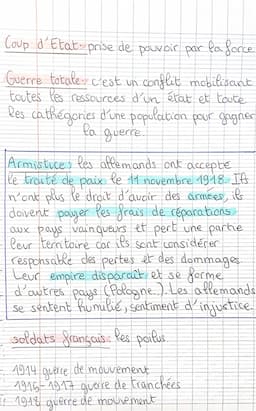 Coup d'Etat: prise de pouvoir par la force
Guerre totale: c'est un conflit mobilisant
toutes les ressources d'un état et toute
les cathégories d'une population pour gagner
la guerre.
Armistice: les allemands ont accepté
le traité de paix le 11 novembre 1918. Ils
n'ont plus le droit d'avoir des armées, ils
doivent payer les frais de réparations
aux pays vainqueurs et pert une partie
leur territoire car ils sont considérer
responsable des pertes et des dommages
Leur empire disparaît et se forme
d'autres pays (Pologne..). Les allemands
se sentent humilié, sentiment d'injustice.
soldats français: les poilus
1914 guerre de mouvement
1915-1917 guerre de tranchées
1918 guerre de mouvement